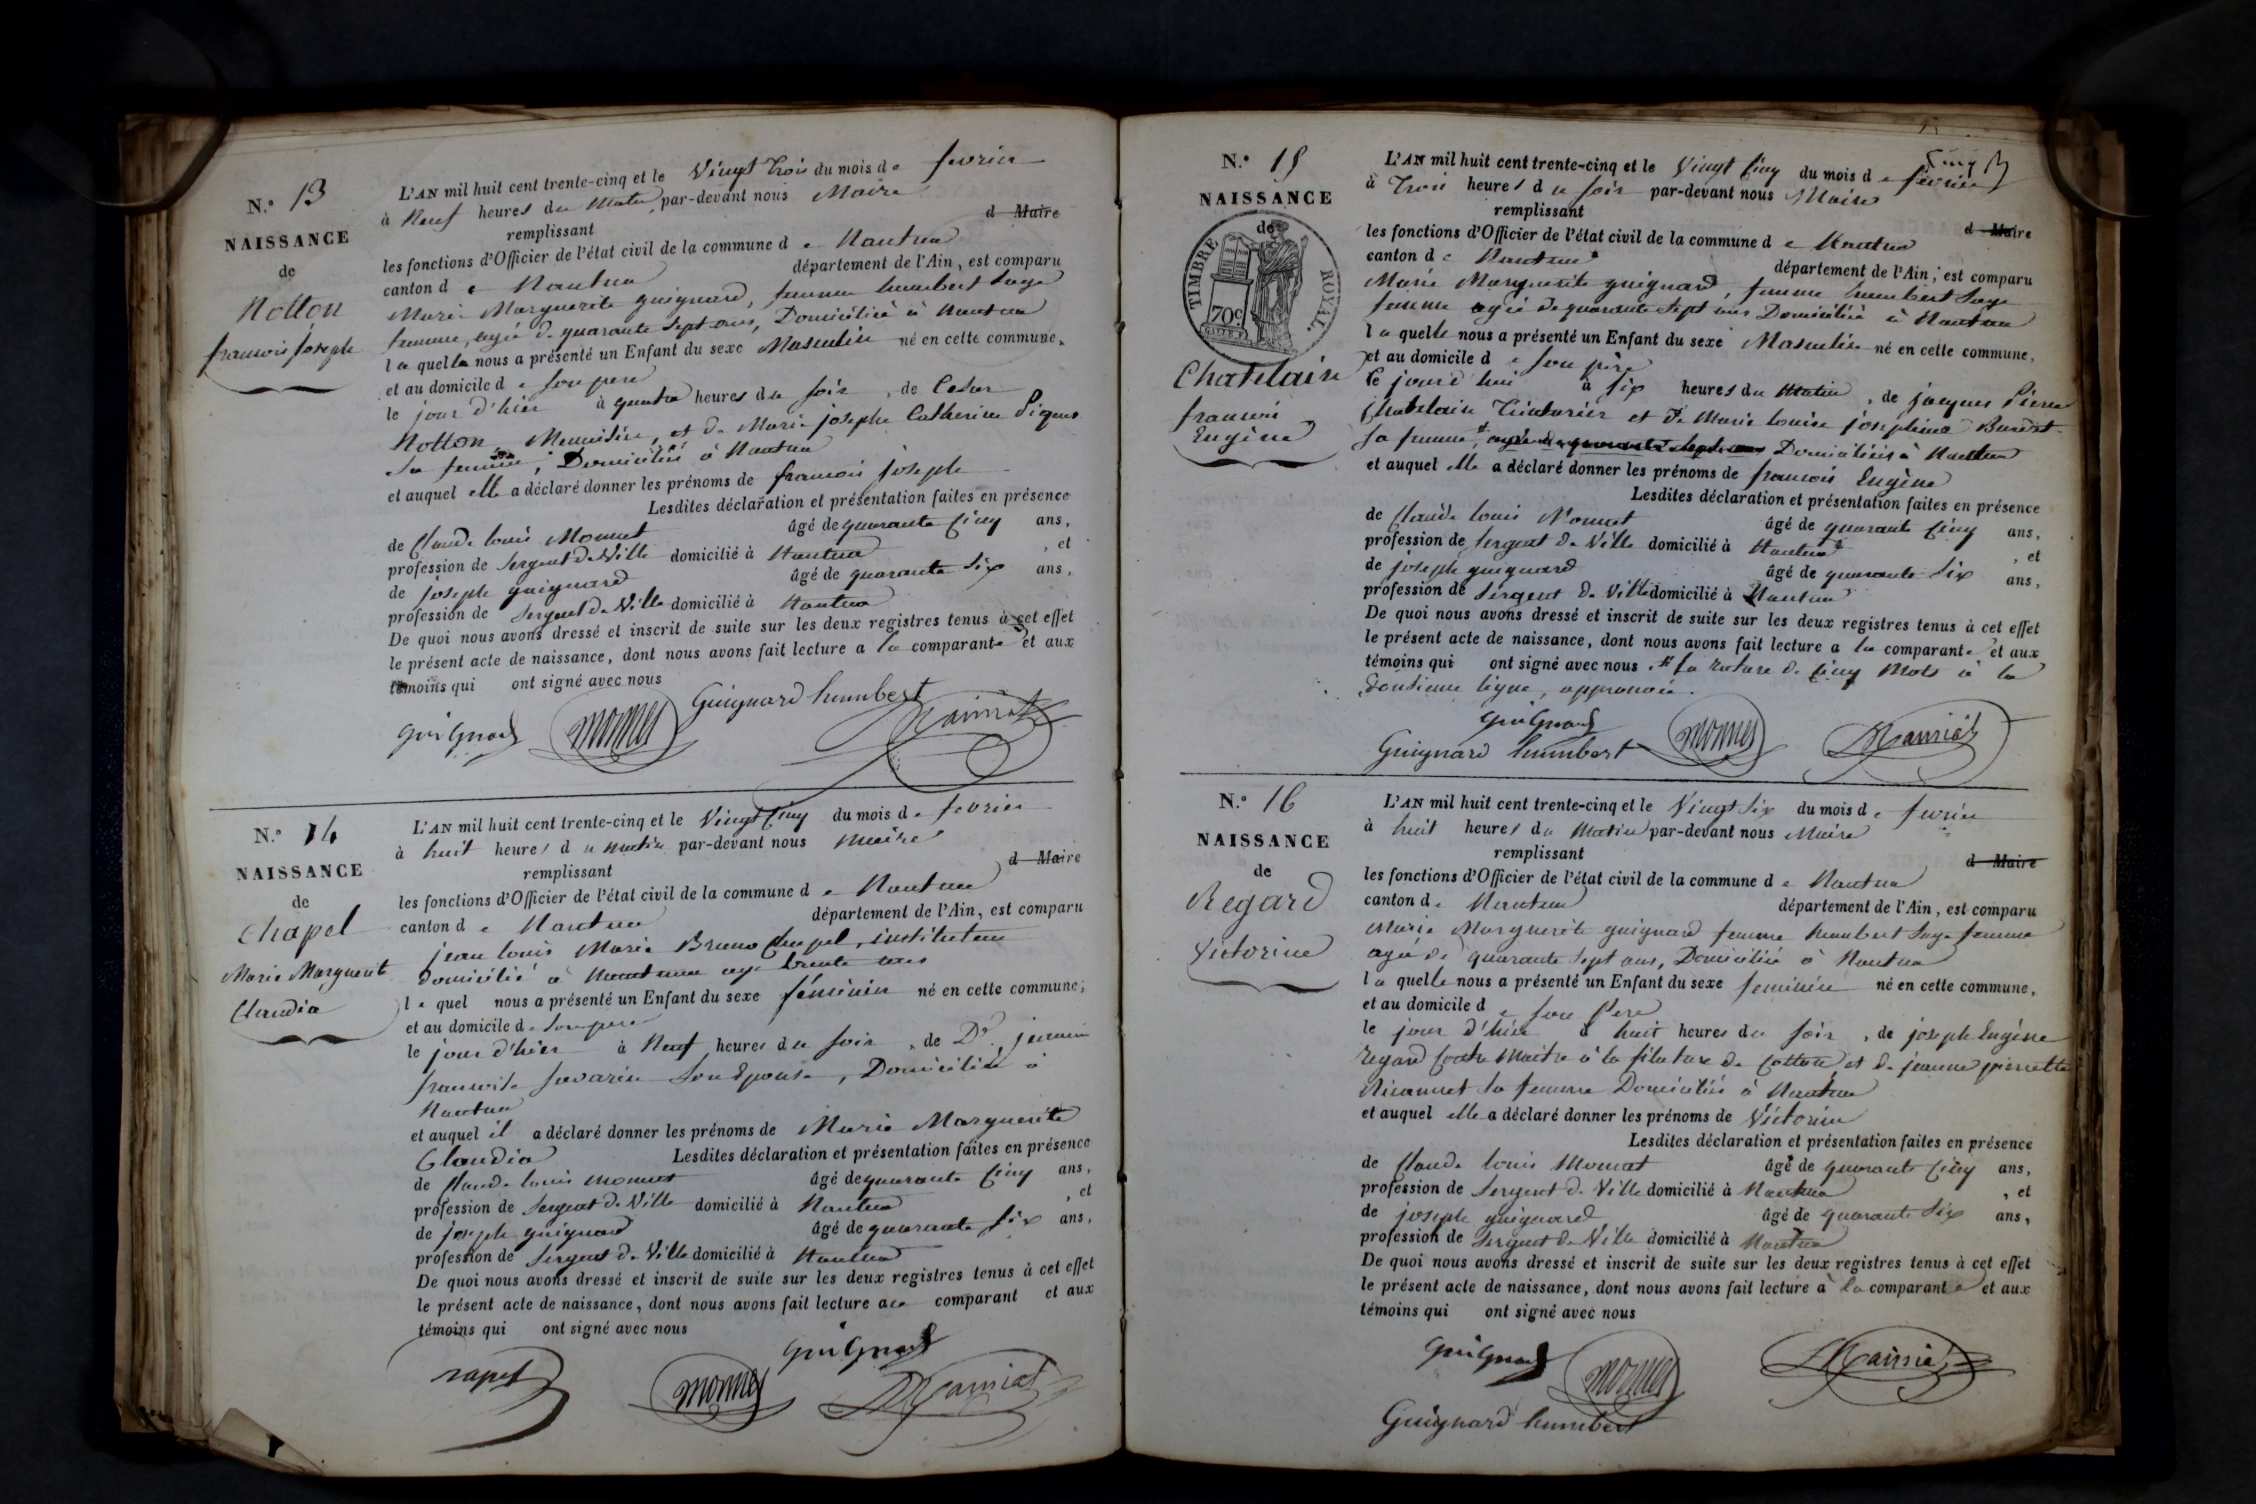 N.° 13
NAISSANCE
de
Notton
françois Joseph
L'AN mil huit cent trente-cinq et le Vingt trois du mois de fevrier
à Neuf heures du Matin, par-devant nous Maire
remplissant d Maire
les fonctions d'Officier de l'état civil de la commune de Nantua
canton de Nantua département de l'Ain, est comparu
Marie Marguerite guignard, femme humbert Sage
femme, agée de quarante Sept ans, Domiciliée à Nantua
laquelle nous a présenté un Enfant du sexe Masculin né en cette commune,
et au domicile de Son pere
le jour d'hier à quatre heures du soir, de Cesar
Notton, Menuisier, et de Marie josephe Catherine
Sa femme, Domiciliés à Nantua
et auquel elle a déclaré donner les prénoms de francois joseph
Lesdites déclaration et présentation faites en présence
de Claude louis Monnet âgé de quarante Cinq ans,
profession de Sergent de Ville domicilié à Nantua, et
de joseph guignard âgé de quarante Six ans,
profession de Sergent de Ville domicilié à Nantua
De quoi nous avons dressé et inscrit de suite sur les deux registres tenus à cet effet
le présent acte de naissance, dont nous avons fait lecture a la comparante et aux
témoins qui ont signé avec nous
Guignard humbert
guignard monnet
N.° 14
NAISSANCE
de
Chapel
Marie Marguerit
Claudia
L'AN mil huit cent trente-cinq et le Vingt Cinq du mois de fevrier
à huit heures du matin par-devant nous Maire
remplissant d Maire
les fonctions d'Officier de l'état civil de la commune de Nantua
canton de Nantua département de l'Ain, est comparu
jean louis Marie Bruno Chapel, instituteur
domicilié à Nantua agé trente ans
lequel nous a présenté un Enfant du sexe féminin né en cette commune;
et au domicile de Son pere
le jour d'hier à Neuf heures du soir, de De.
francoise Savarin Son Epouse, Domiciliée à
Nantua
et auquel il a déclaré donner les prénoms de Marie Marguerite
Claudia Lesdites déclaration et présentation faites en présence
de Claude louis monnet âgé de quarante Cinq ans,
profession de Sergent de Ville domicilié à Nantua, et
de joseph guignard âgé de quarante Six ans,
profession de Sergent de Ville domicilié à Nantua
De quoi nous avons dressé et inscrit de suite sur les deux registres tenus à cet effet
le présent acte de naissance, dont nous avons fait lecture au comparant et aux
témoins qui ont signé avec nous
guignard
monnet
N.° 15
NAISSANCE
de
TIMBRE ROYAL.
70c.
Chatelain
francois
Eugène
L'AN mil huit cent trente-cinq et le Vingt Cinq du mois de fevrier
à Trois heures du soir par-devant nous Maire
remplissant d Maire
les fonctions d'Officier de l'état civil de la commune de Nantua
canton de Nantua département de l'Ain, est comparu
Marie Marguerite guignard, femme humbert Sage
femme agée de quarante Sept ans Domiciliée à Nantua
laquelle nous a présenté un Enfant du sexe Masculin né en cette commune,
et au domicile de Son père
Ce jourd'hui à six heures du Matin, de jacques Pierre
Chatelain Teinturier et De Marie louise josephine
Sa femme, agée de quarante Sept ans Domiciliés à Nantua
et auquel elle a déclaré donner les prénoms de francois Eugène
Lesdites déclaration et présentation faites en présence
de Claude louis Monnet âgé de quarante Cinq ans,
profession de Sergent de Ville domicilié à Nantua, et
de joseph guignard âgé de quarante Six ans,
profession de Sergent de Ville domicilié à Nantua
De quoi nous avons dressé et inscrit de suite sur les deux registres tenus à cet effet
le présent acte de naissance, dont nous avons fait lecture a la comparante et aux
témoins qui ont signé avec nous # la rature de Cinq Mots à la
Douzieme ligne, approuvée.
guignard
Guignard humbert monnet
N.° 16
NAISSANCE
de
Regard
Victorine
L'AN mil huit cent trente-cinq et le Vingt Six du mois de fevrier
à huit heures du Matin par-devant nous Maire
remplissant d Maire
les fonctions d'Officier de l'état civil de la commune de Nantua
canton de Nantua département de l'Ain, est comparu
Marie Marguerite guignard femme humbert Sage femme
agée de quarante Sept ans, Domiciliée à Nantua
laquelle nous a présenté un Enfant du sexe feminin né en cette commune,
et au domicile de Son Pere
le jour d'hier à huit heures du soir, de joseph Eugène
regard Contre Maitre à la filature de Cotton et de jeanne pierrette
Sa femme Domiciliés à Nantua
et auquel elle a déclaré donner les prénoms de Victorine
Lesdites déclaration et présentation faites en présence
de Claude louis Monnet âgé de quarante Cinq ans,
profession de Sergent de Ville domicilié à Nantua, et
de joseph guignard âgé de quarante Six ans,
profession de Sergent de Ville domicilié à Nantua
De quoi nous avons dressé et inscrit de suite sur les deux registres tenus à cet effet
le présent acte de naissance, dont nous avons fait lecture à la comparante et aux
témoins qui ont signé avec nous
guignard monnet
Guignard humbert